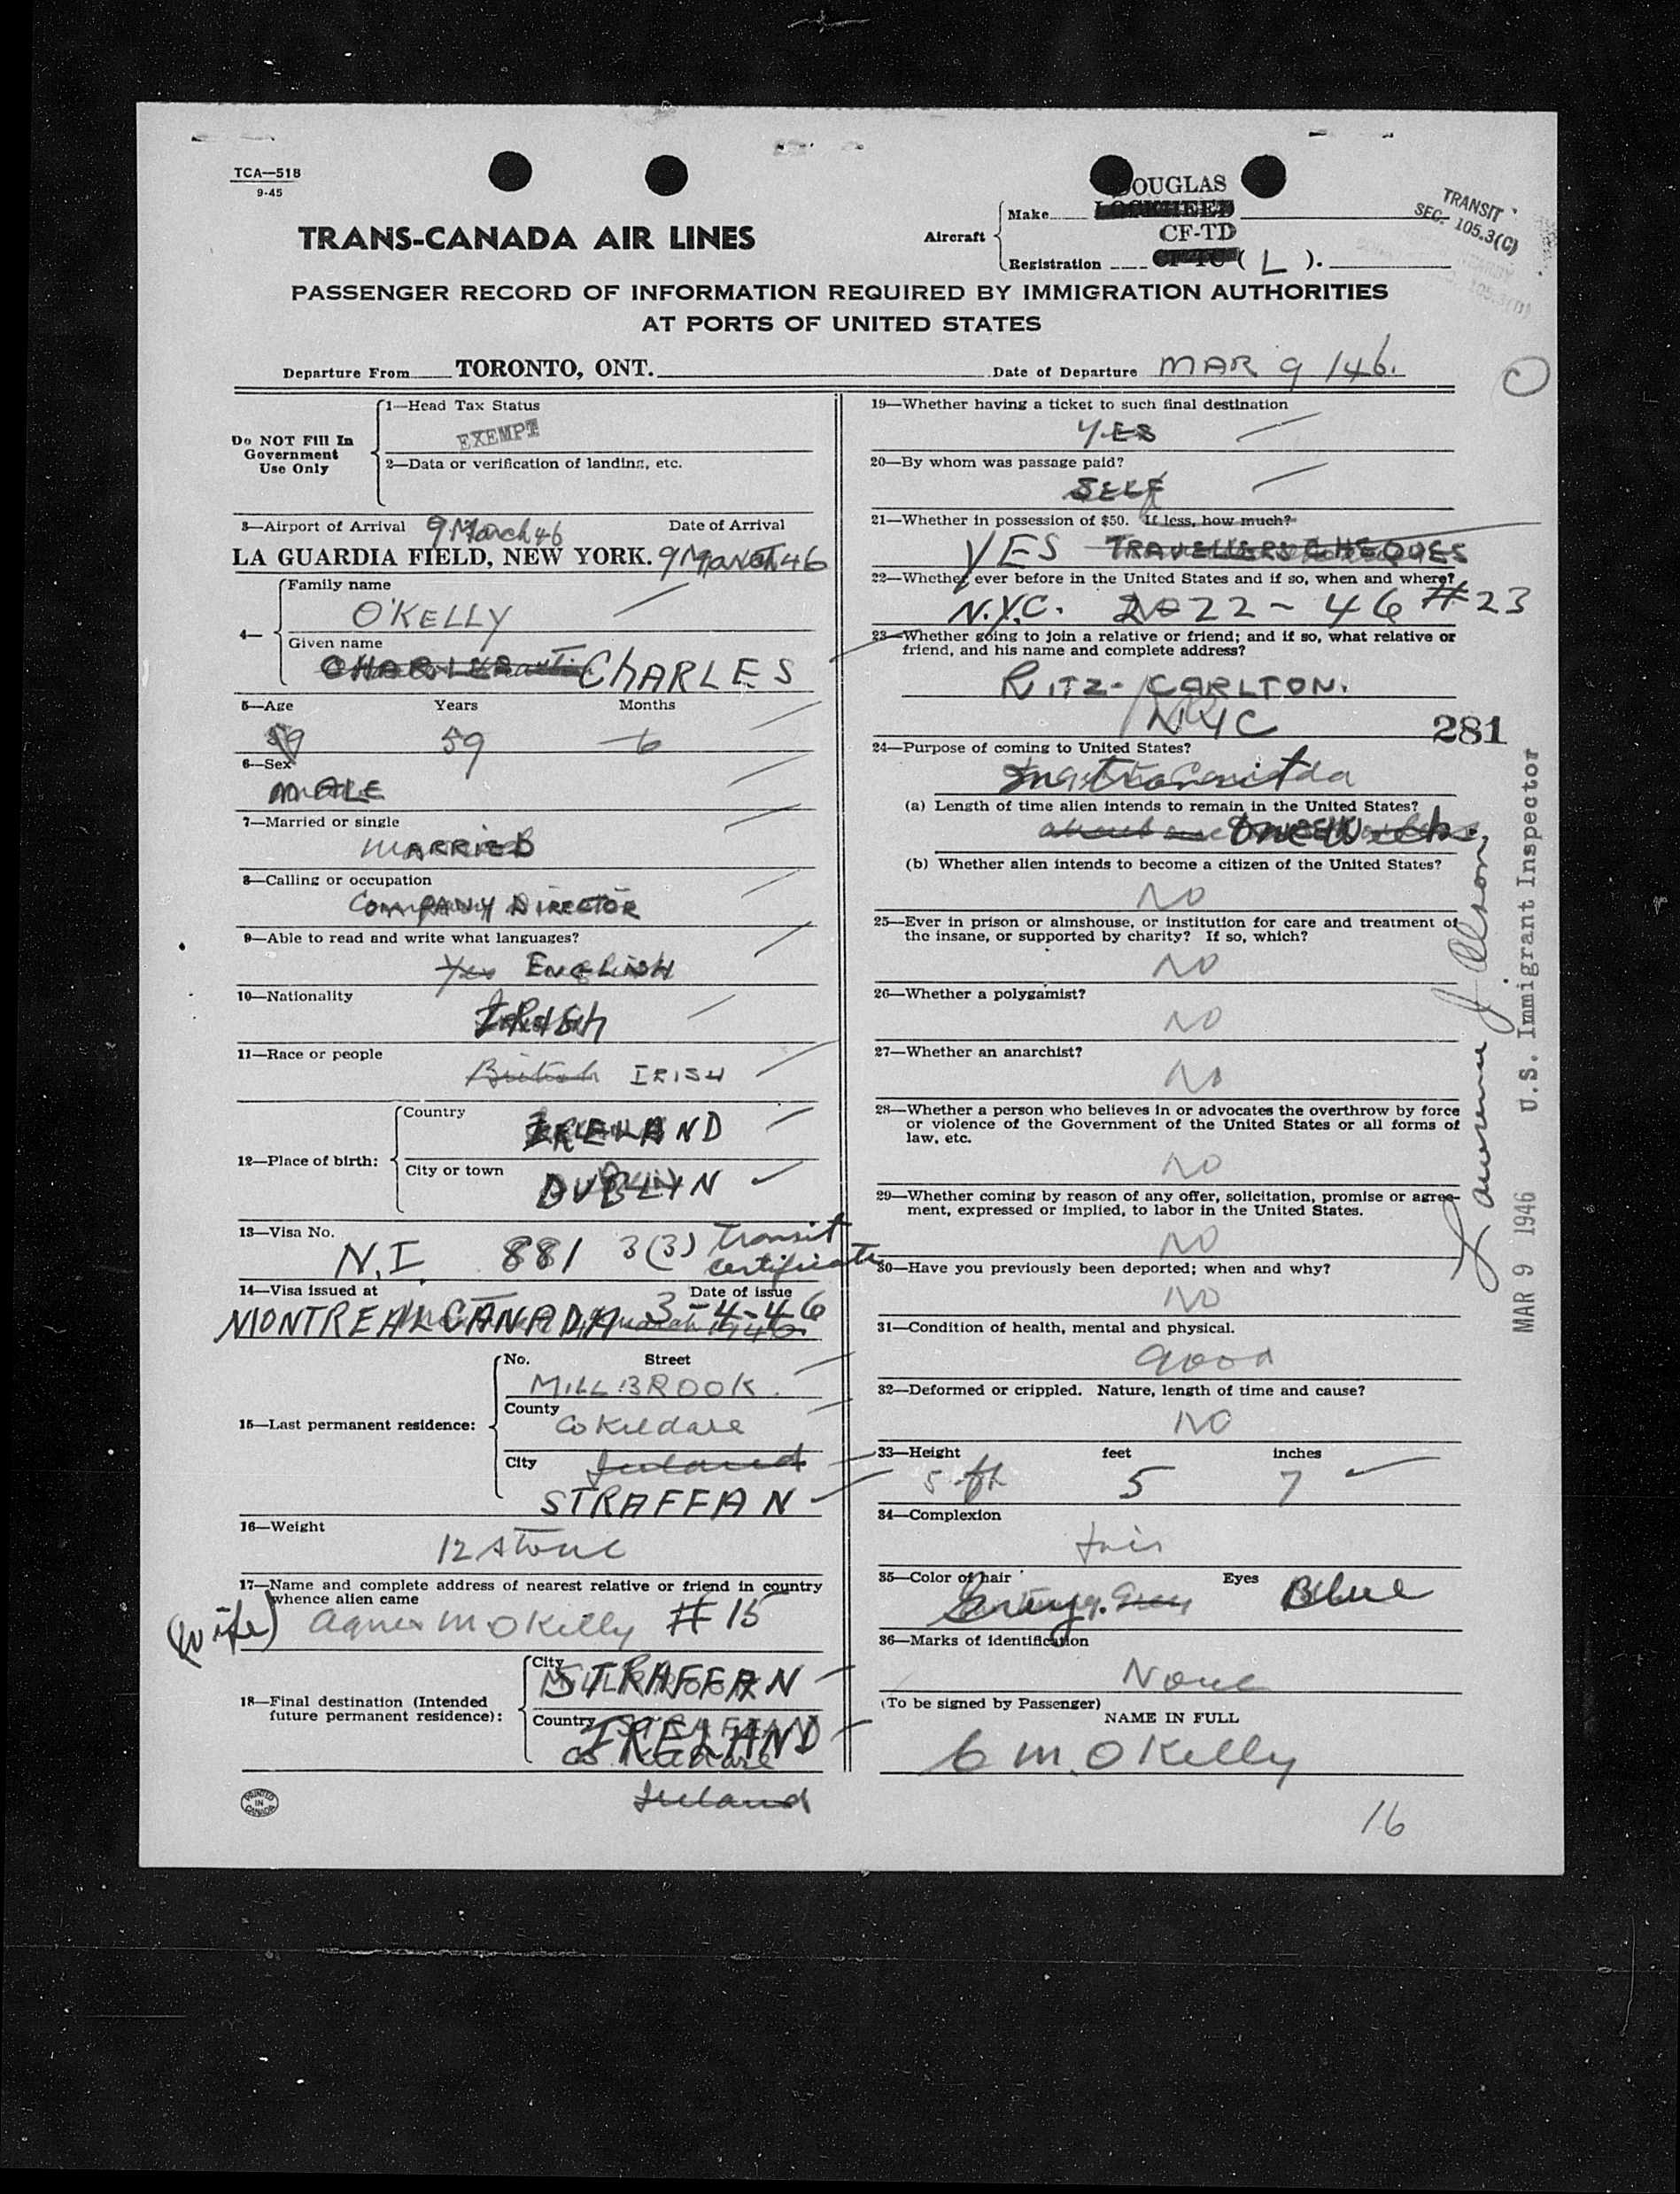 TCA—518
9-45
TRANS-CANADA AIR LINES
Aircraft
Make
DOUGLAS
LOCKHEED
CF-TD
Registration CF-TC ( L ).
TRANSIT
SEC. 105.3(C)
PASSENGER RECORD OF INFORMATION REQUIRED BY IMMIGRATION AUTHORITIES
AT PORTS OF UNITED STATES
Departure From TORONTO, ONT.
Date of Departure MAR 9 /46.
Do NOT Fill In
Government
Use Only
1—Head Tax Status
EXEMPT
2—Data or verification of landing, etc.
3—Airport of Arrival 9 March 46 Date of Arrival
LA GUARDIA FIELD, NEW YORK. 9 March 46
4—
Family name
O'KELLY
Given name
CHARLES CHARLES
5—Age Years Months
59 59 6
6—Sex
MALE
7—Married or single
MARRIED
8—Calling or occupation
COMPANY DIRECTOR
9—Able to read and write what languages?
Yes ENGLISH
10—Nationality
IRISH
11—Race or people
British IRISH
12—Place of birth:
Country
IRELAND
City or town
DUBLIN
13—Visa No.
N.I. 881 3(3) transit
certificate
14—Visa issued at Date of issue
MONTREAL CANADA 3-4-46
15—Last permanent residence:
No. Street
MILLBROOK.
County
Co Kildare
City Ireland
STRAFFAN
16—Weight
12 stone
17—Name and complete address of nearest relative or friend in country
whence alien came
(wife) Agnes M O Kelly # 15
18—Final destination (Intended
future permanent residence):
City
STRAFFAN
Country
IRELAND
Co Kildare
Ireland
PRINTED
IN
CANADA
19—Whether having a ticket to such final destination
YES
20—By whom was passage paid?
SELF
21—Whether in possession of $50. If less, how much?
YES TRAVELLERS CHEQUES
22—Whether ever before in the United States and if so, when and where?
N.Y.C. 2-22-46 # 23
23—Whether going to join a relative or friend; and if so, what relative or
friend, and his name and complete address?
RITZ-CARLTON.
NYC
281
24—Purpose of coming to United States?
In transit
(a) Length of time alien intends to remain in the United States?
about one One Week
(b) Whether alien intends to become a citizen of the United States?
NO
25—Ever in prison or almshouse, or institution for care and treatment of
the insane, or supported by charity? If so, which?
NO
26—Whether a polygamist?
NO
27—Whether an anarchist?
NO
28—Whether a person who believes in or advocates the overthrow by force
or violence of the Government of the United States or all forms of
law, etc.
NO
29—Whether coming by reason of any offer, solicitation, promise or agree-
ment, expressed or implied, to labor in the United States.
NO
30—Have you previously been deported; when and why?
NO
31—Condition of health, mental and physical.
Good
32—Deformed or crippled. Nature, length of time and cause?
NO
33—Height feet inches
5 ft 5 7
34—Complexion
fair
35—Color of hair Eyes
Gray. Grey Blue
36—Marks of identification
None
(To be signed by Passenger)
NAME IN FULL
C M. O Kelly
16
Lawrence J Olson
MAR 9 1946 U.S. Immigrant Inspector